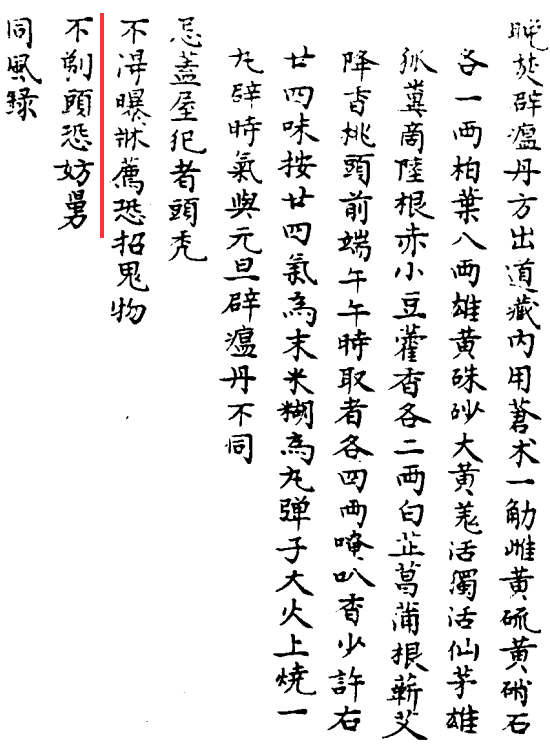 晚焚辟瘟丹方出道藏內用蒼术一觔雌黃硫黃硝石
各一兩柏葉八兩雄黃硃砂大黃羌活獨活仙茅雄
狐糞啇陸根赤小豆藿香各二兩白芷菖蒲根蘄艾
降香桃頭前端午午時取者各四兩唵叭香少許右
廿四味按廿四氣為末米糊為丸彈子大火上燒一
丸辟時氣與元旦辟瘟丹不同
忌蓋屋犯者頭禿
不淂曝牀薦恐招鬼物
不剃頭恐妨舅
同風錄